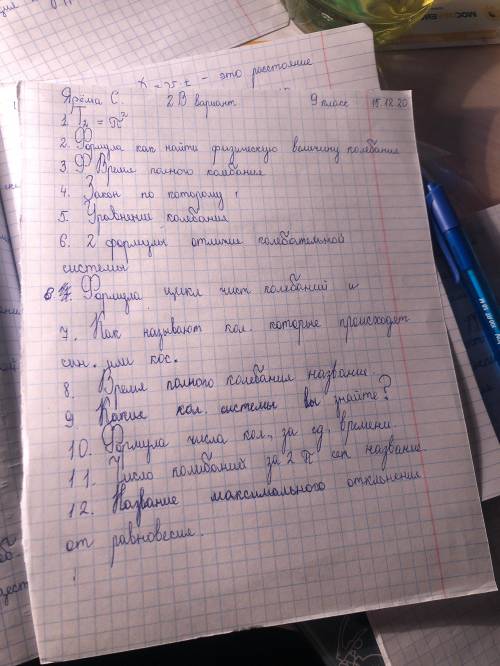 x = v.t - это расстояние
Ярёма С. 2 В вариант 9 класс 15.12.20
1. T₂ = π²
2. Формула как найти физическую величину колебания
3. Время полного колебания
4. Закон по которому
5. Уравнение колебания
6. 2 формулы отличи колебательной
системы
Формула цикл чист колебаний и
7. Как называют кол. которые происходят
син. или кос.
8. Время полного колебания название
9 Какие кол. системы вы знайте?
10. Формула числа кол, за ед, времени.
11. Число колибаний за 2π сек название
12. Название максимального отклонения
от равновесия.